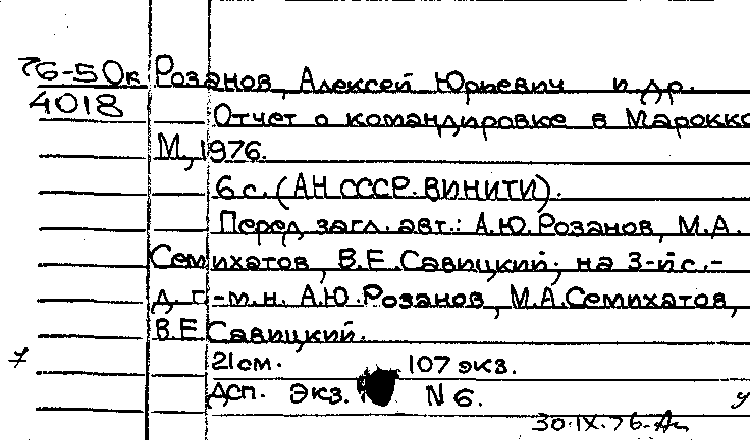 76-50к Розанов, Алексей Юрьевич и др.
4018 Отчет о командировке в Марокко
М, 1976.
6 с. (АН СССР. ВИНИТИ).
Перед загл. авт.: А.Ю. Розанов, М.А.
Семихатов, В.Е. Савицкий; на 3-й с.-
д. г.-м.н. А.Ю. Розанов, М.А. Семихатов,
В.Е Савицкий.
7 21 см. 107 экз.
Дсп. Экз. N 6.
30.IX.76.